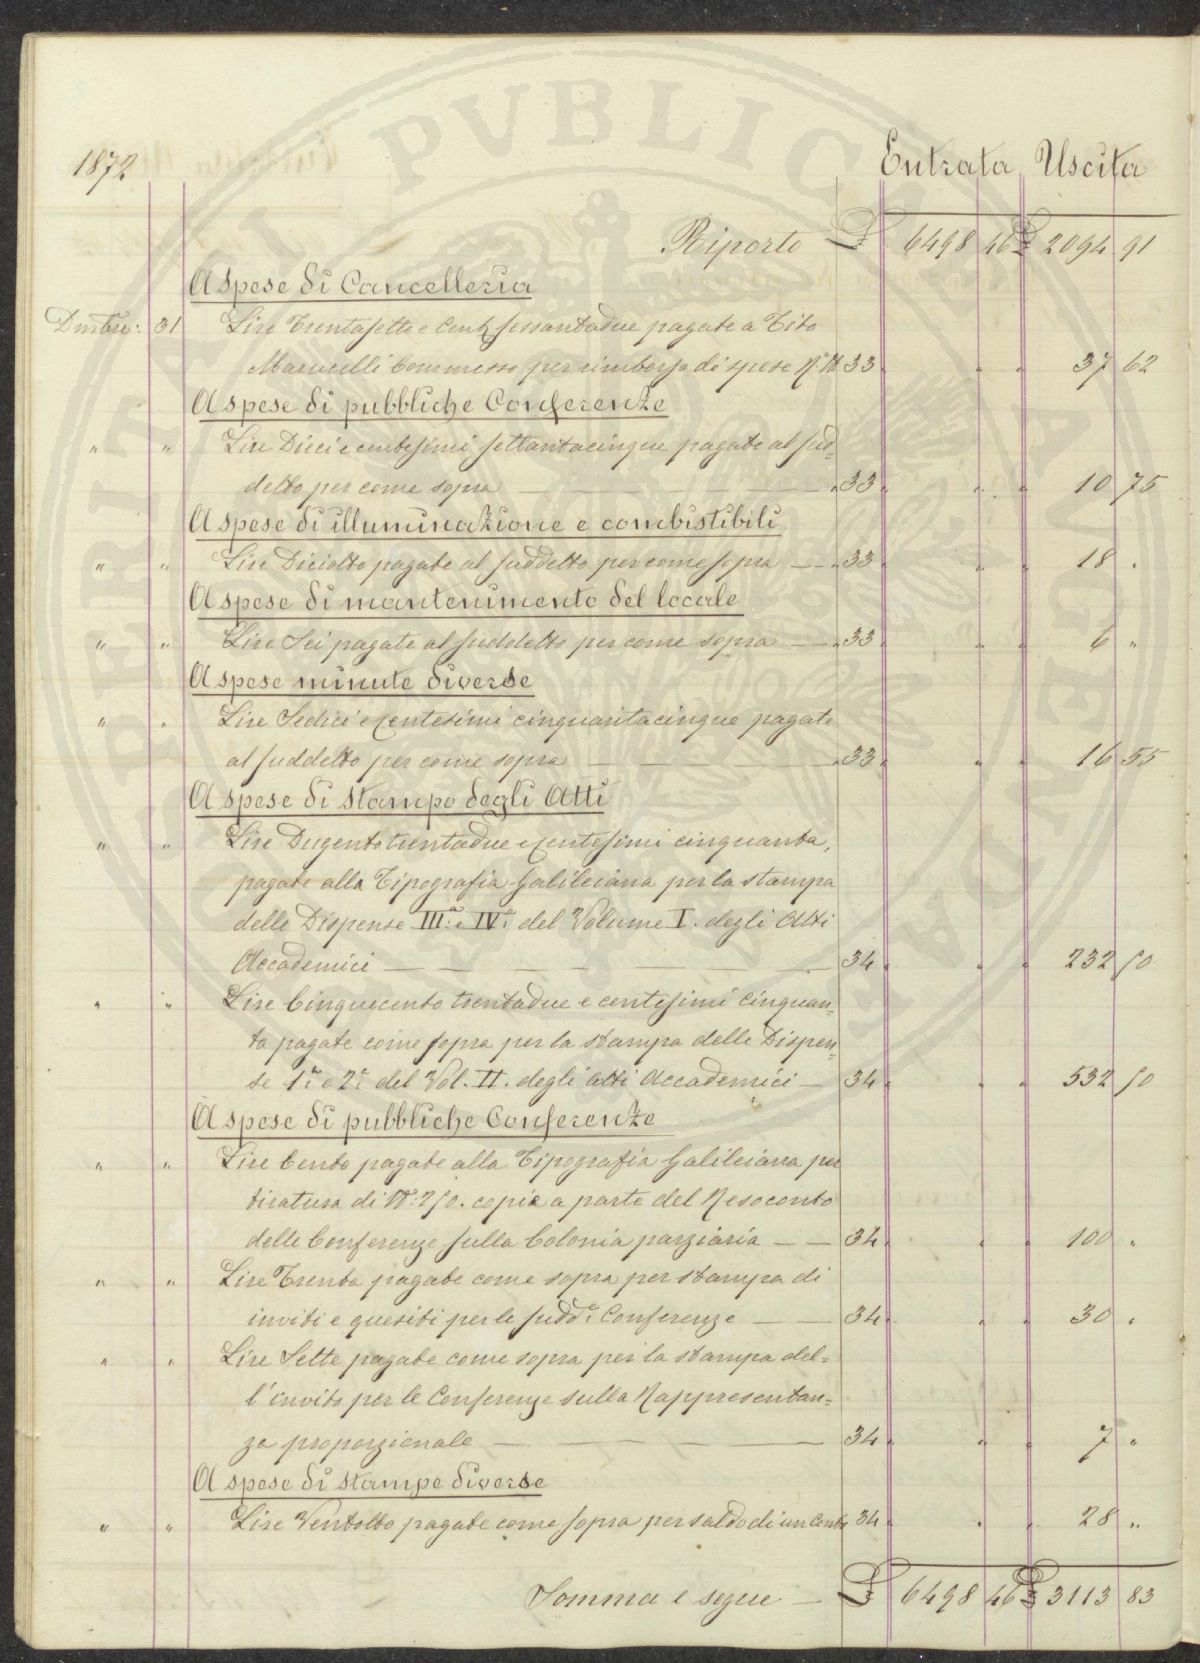 1872
Entrata Uscita
Riporto £ 6498 46 £ 2094 91
A spese di Cancelleria
Dmbre: 31 Lire Trentasette e Cent. sessantadue pagate a Tito
Commesso per rimborso di spese N.° 33 " " 37 62
A spese di pubbliche Conferenze
" " Lire Dieci e centesimi settantacinque pagate al sud-
detto per come sopra — " 33 " " 10 75
A spese di illuminazione e combistibili
" " Lire Diciotto pagate al suddetto per come sopra — " 33 " " 18 "
A spese di mantenimento del locale
" " Lire Sei pagate al suddetto per come sopra — " 33 " " 6 "
A spese minute diverse
" " Lire Sedici e centesimi cinquantacinque pagate
al suddetto per come sopra — " 33 " " 16 55
A spese di stampa degli Atti
" " Lire Dugentotrentadue e centesimi cinquanta,
pagate alla Tipografia Galileiana per la stampa
delle Dispense III.a e IV.a del Volume I. degli Atti
Accademici — 34 " " 232 50
" " Lire Cinquecento trentadue e centesimi cinquan-
ta pagate come sopra per la stampa delle Dispen-
se 1.a e 2.a del Vol. II. degli Atti Accademici — 34 " " 532 50
A spese di pubbliche Conferenze
" " Lire Cento pagate alla Tipografia Galileiana per
tiratura di N.° 250. copie a parte del Resoconto
delle Conferenze sulla Colonia parziaria — 34 " " 100 "
" " Lire Trenta pagate come sopra per stampa di
inviti e quesiti per le sudd.e Conferenze — 34 " " 30 "
" " Lire Sette pagate come sopra per la stampa del=
l'invito per le Conferenze sulla Rappresentan=
za proporzionale — 34 " " 7 "
A spese di stampe diverse
" " Lire Ventotto pagate come sopra per saldo di un Conto 34 " " 28 "
Somma e segue — £ 6498 46 £ 3113 83